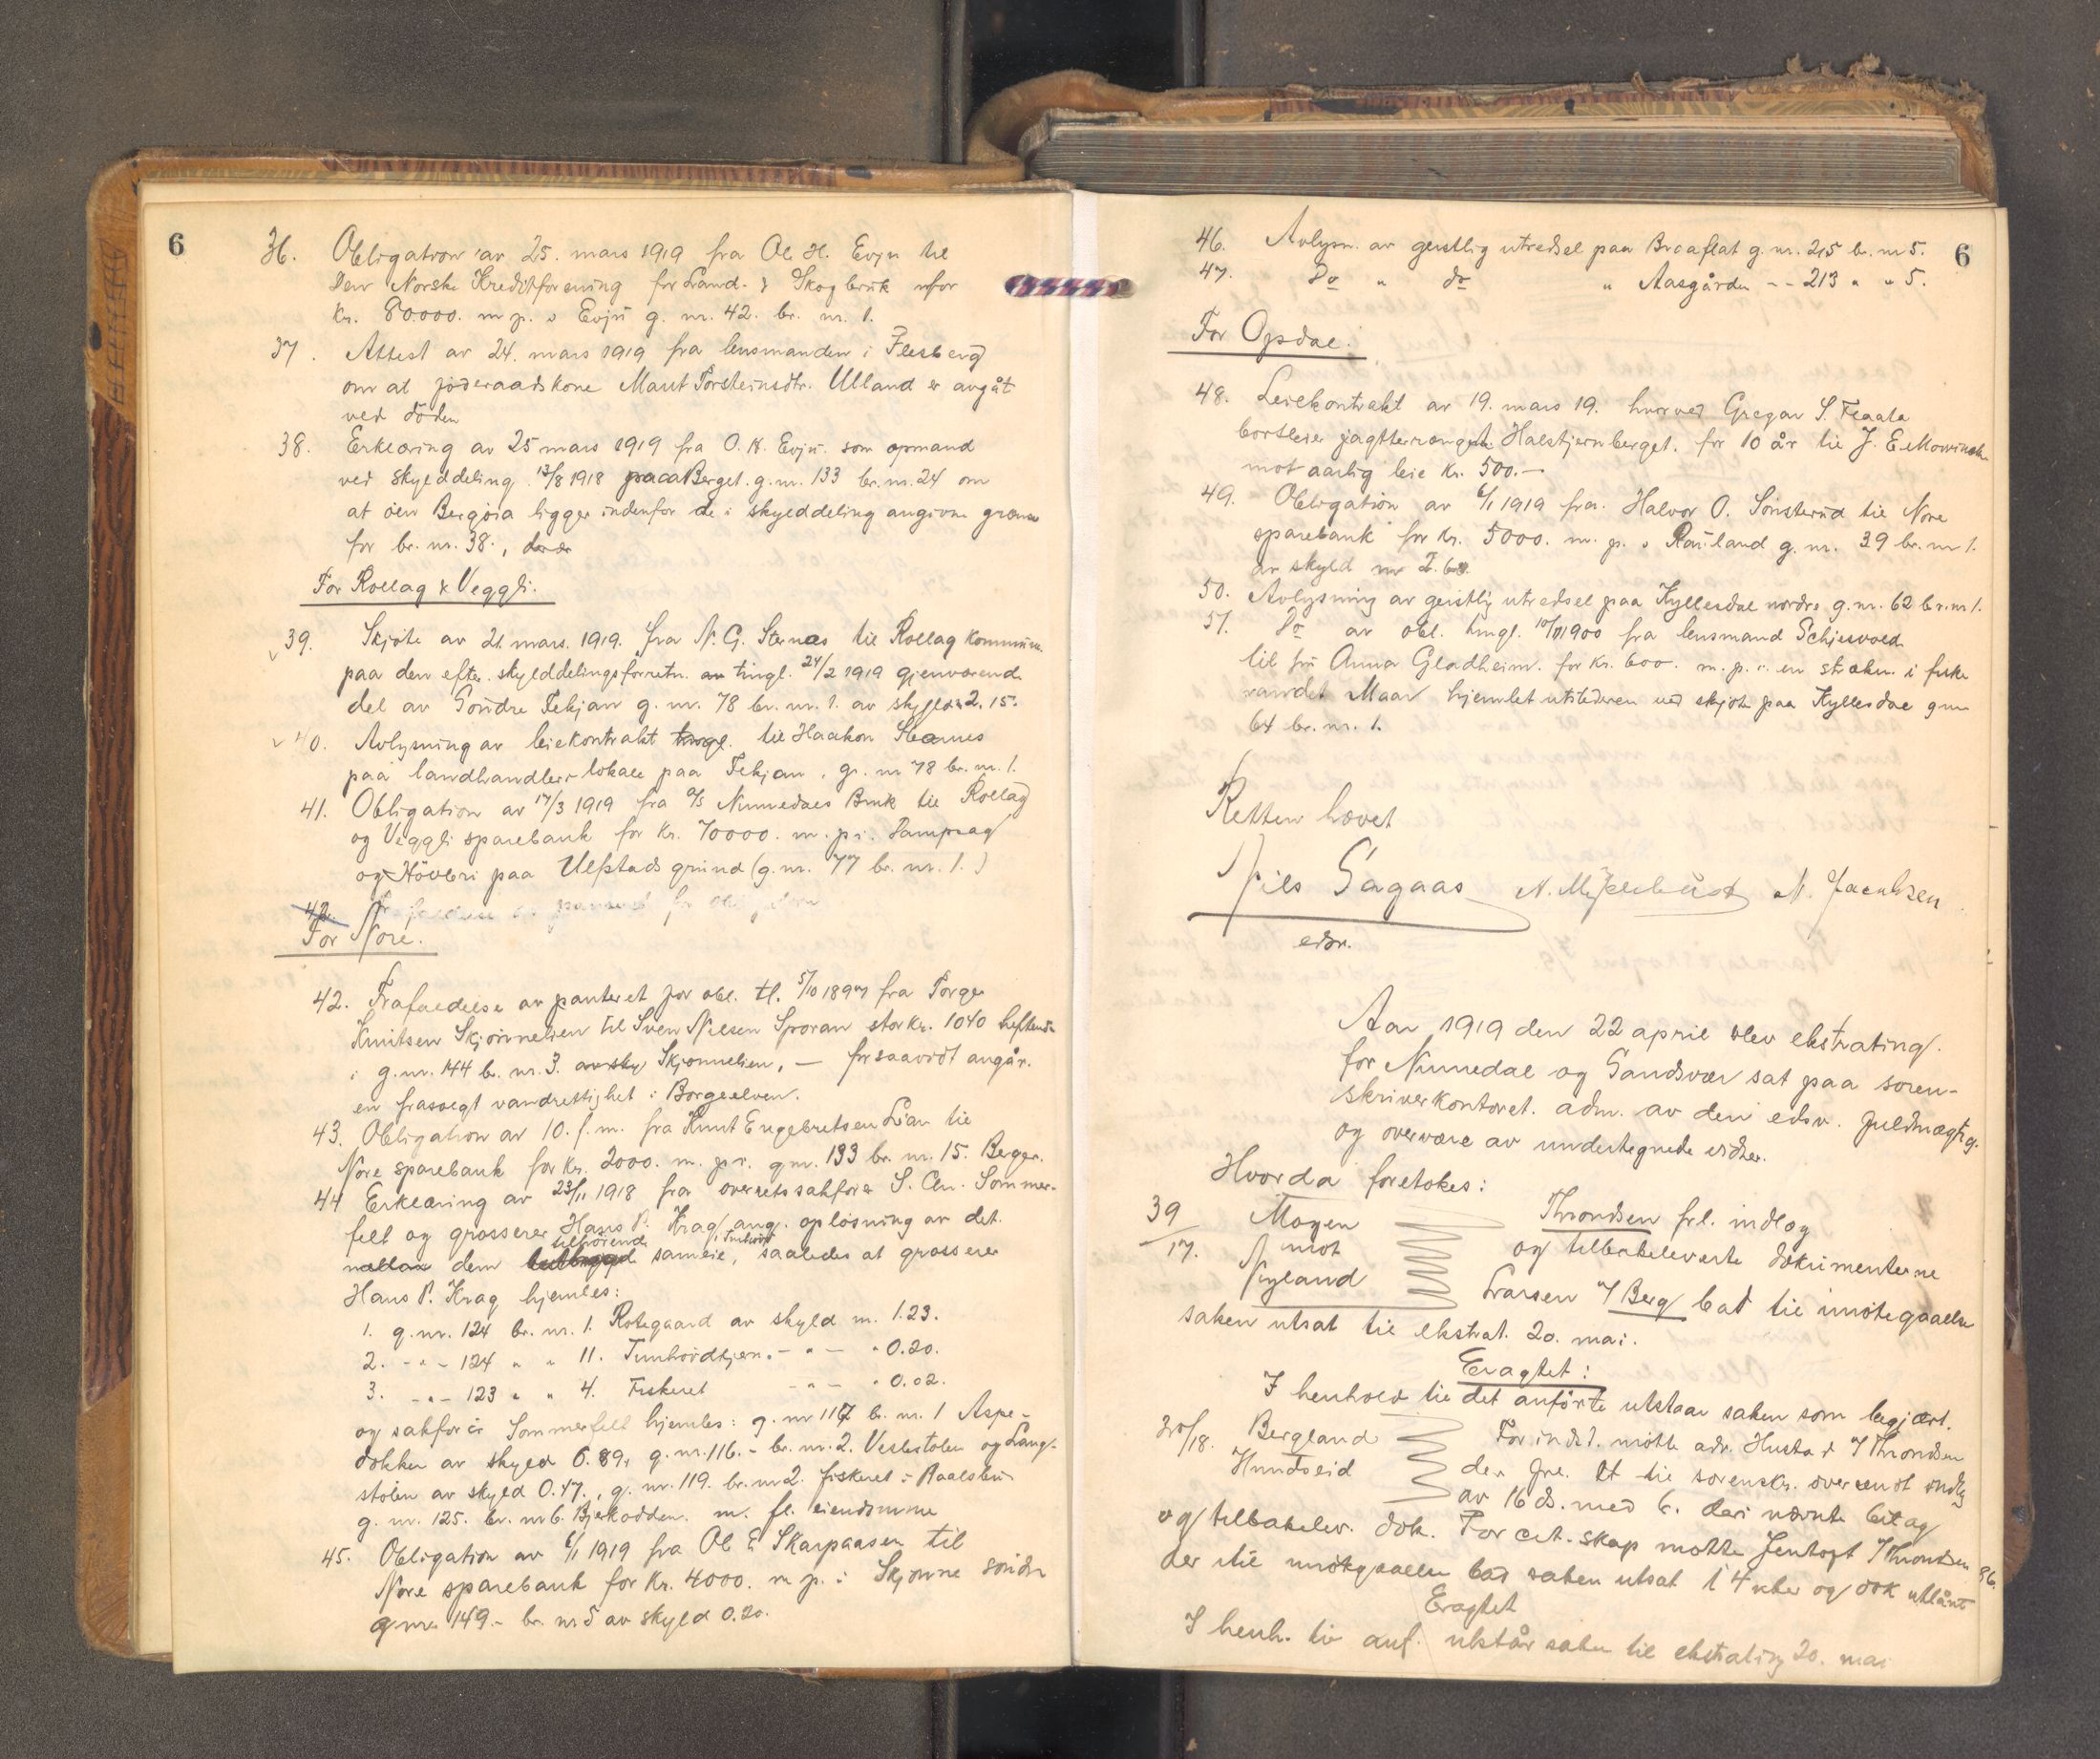 6
36. Obligation av 25. mars 1919 fra Ol H. Evju til
Den Norske Kreditforening for Land- & Skogbruk nfor
Kr. 80000. m p. i Evju g. nr. 42. br. nr. 1.
37. Attest av 24. mars 1919 fra lensmanden i Flesberg
om at föderaadskone Marit Torsteinsdtr. Ulland er avgåt
ved döden
38. Erklæring av 25 mars 1919 fra O. H. Evju som opmand
ved skylddeling 13/8 1918 paa Berget. g. nr. 133 br. nr. 24 om
at den Bergöia ligger indenfor de i skylddeling angivne grænser
for br. nr. 38.,
For Rollag & Veggli.
39. Skjöte av 21. mars. 1919. fra N. G. Stenæs til Rollag Kommune
paa den efter skylddelingsforretn. tingl. 24/2 1919 gjenværende
del av Söndre Tekjan g. nr. 78 br. nr. 1. av skyld 2. 15.
40. Avlysning av leiekontrakt tingl. til Haakon Stenæs
paa landhandler-lokale paa Tekjan, g. nr 78 br. nr. 1.
41. Obligation av 17/3 1919 fra A/S Numedals Bruk til Rollag
og Veggli sparebank for Kr. 70000. m. p. i. Dampsag
og Hövleri paa Ulfstads grund (g. nr. 77 br. nr. 1.)
42.
For Nore.
42. Frafaldelse av panteret for obl. tl. 5/10 1897 fra Torge
Knutsen Skjönnelien til Sven Nilsen Sporan stor Kr. 1040 heftende
i g. nr. 144 br. nr. 3. Skjönnelien, — forsaavidt angår.
en frasolgt vandrettighet i Borgeelven.
43. Obligation av 10. f. m. fra Knut Engebretsen Lian til
Nore sparebank for Kr. 2000. m. p. i. g nr. 133 br. nr. 15. Berget.
44 Erklæring av 23/11 1918 fra overretssakförer S. Chr. Sommer-
felt og grosserer Hans P. Krag ang. oplösning av det.
mellem dem tilhörende sameie, i Tunhövd saaledes at grosserer
Hans P. Krag hjemles:
1. g. nr. 124 br. nr. 1. Rotegaard av skyld m. 1.23.
2. -"- 124 " " 11. Tunhövdtjern. - " - " 0.20.
3. -"- 123 " " 4. Fiskeret - " - " 0.02.
og sakförer Sommerfelt hjemles: g. nr 117 br. nr. 1 Aspe-
dokken av skyld 0.89, g. nr. 116. - br. nr. 2. Veslestölen og Lang-
stölen av skyld 0.47., g. nr. 119. br. nr 2. fiskeret i
g. nr. 125. br. nr 6. Bjerkodden. m. fl. eiendomme
45. Obligation av 6/1 1919 fra Ol E Skarpaasen til
Nore sparebank for Kr. 4000. m p. i Skjönne söndre
g nr. 149. - br. nr 5 av skyld 0.20.
6
46. Avlysn. av geistlig utredsel paa Braaflat g. nr. 215 br. nr 5.
47. Do " do " Aasgården - - 213 " " 5.
For Opdal.
48. Leiekontrakt av 19. mars 19. hvorved Gregar S. Flaata
bortleier jagtterrænget Halstjernberget. for 10 år til J. E. Mowinckel
mot aarlig leie Kr. 500. —
49. Obligation av 6/1 1919 fra. Halvor O. Sönsterud til Nore
sparebank for Kr. 5000. m. p. i Rauland g. nr. 39 br. nr 1.
av skyld
50. Avlysning av geistlig utredsel paa Hyllesdal nordre g. nr. 62 br. nr 1.
51. Do av obl. tingl. 1900 fra lensmand Schjesvold
til fru Anna Gladheim. for Kr. 600. m. p. i. en strækn. i fiske
vandet Maar hjemlet utstederen ved skjöte paa Hyllesdal g nr
64 br. nr. 1.
Retten hævet
Nils Sagaas N. Myhrehusto N. Jacobsen
edsv.
Aar 1919 den 22 april blev ekstrating.
for Numedal og Sandsvær sat paa soren-
skriverkontoret. adm. av den edsv. fuldmægtig.
og overvære av undertegnede vidner.
Hvorda foretokes:
39/17. Mogen
mot
Nyland
Throndsen frl. indlæg
og tilbakeleverte dokumenterne
Larsen f/ Berg bad til imötegaaelse
saken utsat til ekstrat. 20. mai.
Eragtet:
I henhold til det anförte utstaar saken som begjært.
/18. Bergland
Hundseid
For indst. mötte adv. Hustad f/ Throndsen
der fre. et til sorenskr. oversendt indlæg
av 16 ds. med 6. deri nævnte bilag
og tilbakelev. dok. For cit. skap mötte Jentoft f/ Throndsen
der til imötegaaelse bad saken utsat i 4 uker og dok utlånt
Eragtet
I henh. til anf. utstår saken til ekstrating 20. mai